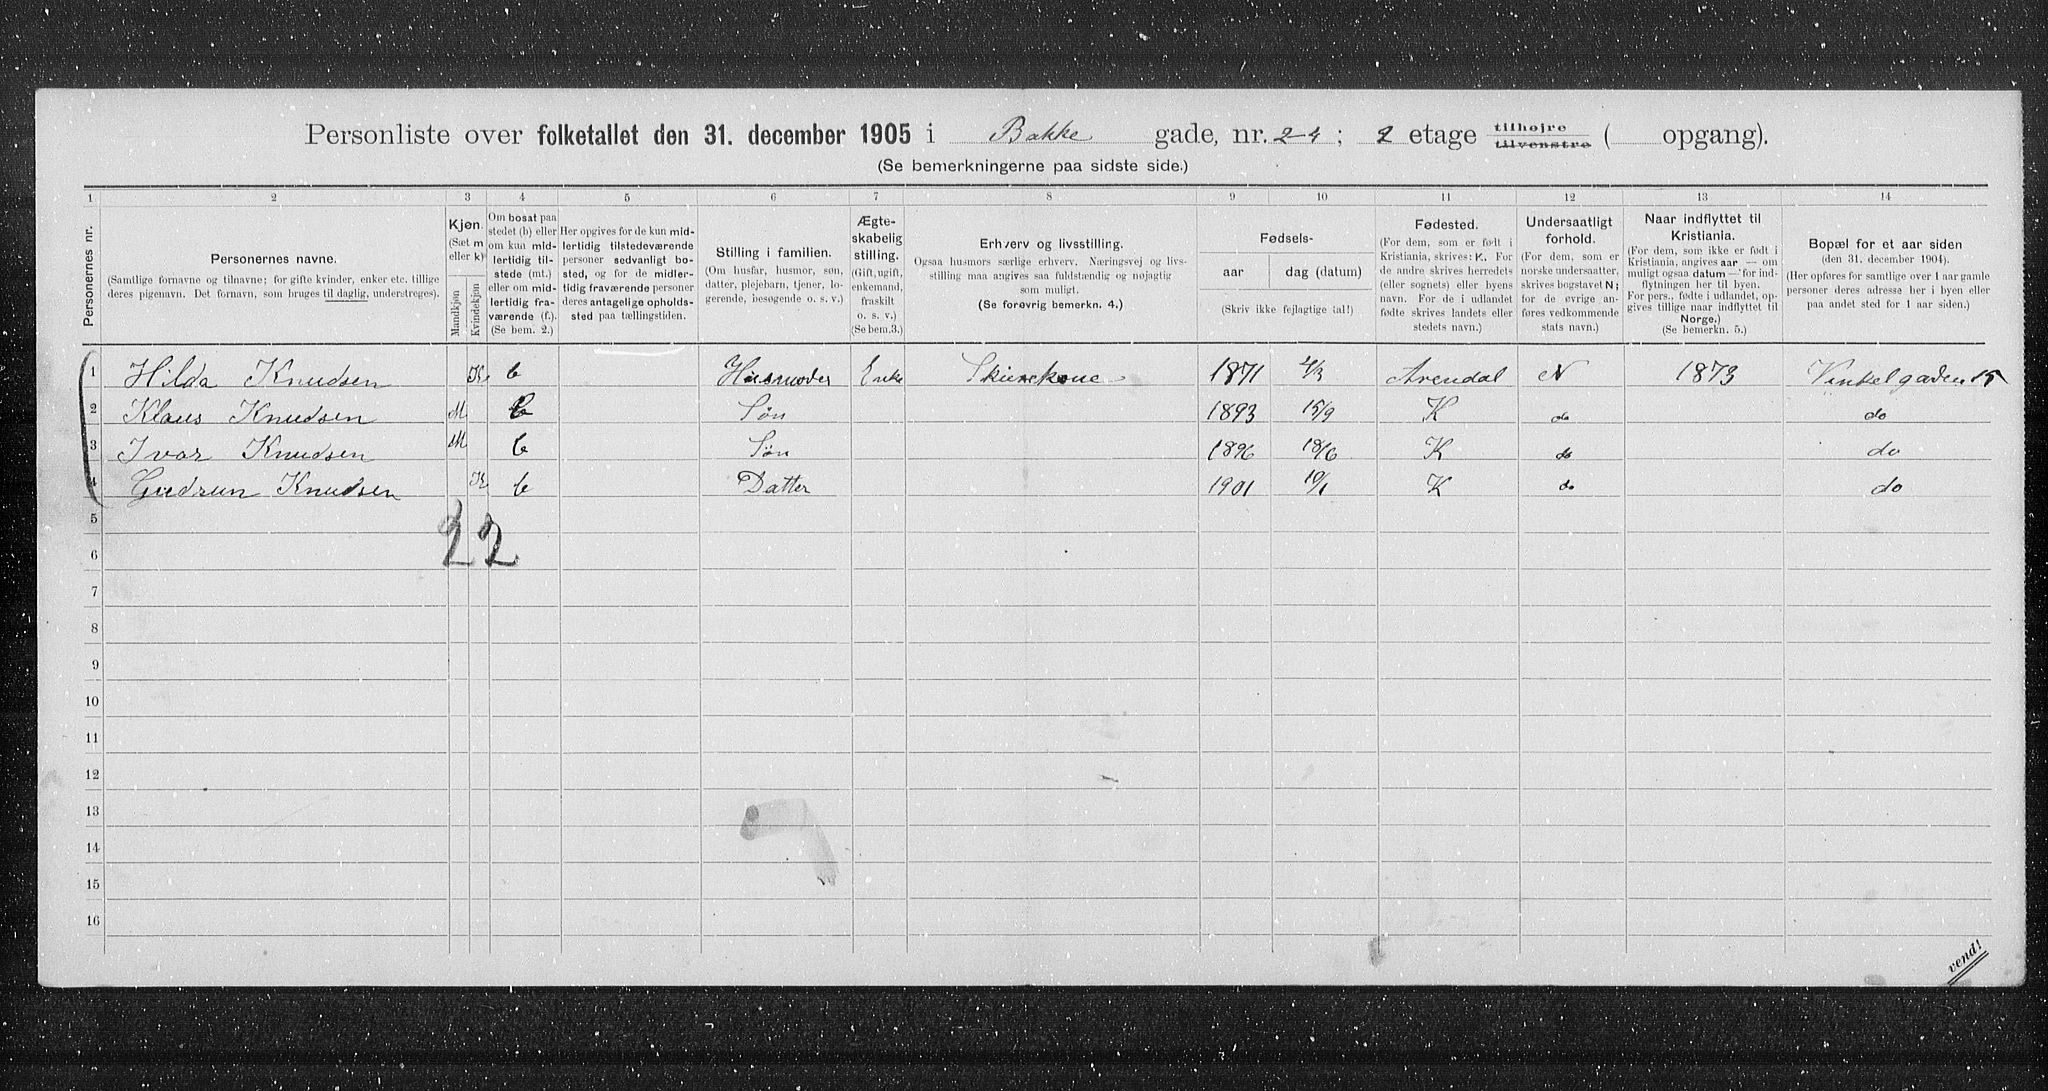 Personliste over folketallet den 31. december 1905 i Bakke gade, nr. 24; 2 etage tilhøjre tilvenstre ( opgang).
(Se bemerkningerne paa sidste side.)
1 2 3 4 5 6 7 8 9 10 11 12 13 14
Personernes nr.
Personernes navne.
(Samtlige fornavne og tilnavne; for gifte kvinder, enker etc. tillige
deres pigenavn. Det fornavn, som bruges til daglig, understreges).
Kjøn.
(Sæt m
eller k)
Mandkjøn
Kvindekjøn
Om bosat paa
stedet (b) eller
om kun mid-
lertidig til-
stede (mt.)
eller om mid-
lertidig fra-
værende (f.).
(Se bem. 2.)
Her opgives for de kun mid-
lertidig tilstedeværende
personer sedvanlig bo-
sted, og for de midler-
tidig fraværende personer
deres antagelige opholds-
sted paa tællingstiden.
Stilling i familien.
(Om husfar, husmor, søn,
datter, plejebarn, tjener, lo-
gerende, besøgende o. s. v.)
Ægte-
skabelig
stilling.
(Gift, ugift,
enkemand,
fraskilt
o. s. v.)
(Se bem. 3.)
Erhverv og livsstilling.
Ogsaa husmors særlige erhverv. Næringsvej og livs-
stilling maa angives saa fuldstændig og nøjagtig
som muligt.
(Se forøvrig bemerkn. 4.)
Fødsels-
aar dag (datum)
(Skriv ikke fejlagtige tal!)
Fødested.
(For dem, som er født i
Kristiania, skrives: K. For
de andre skrives herredets
(eller sognets) eller byens
navn. For de i udlandet
fødte skrives landets eller
stedets navn.)
Undersaatligt
forhold.
(For dem, som er
norske undersaatter,
skrives bogstavet N;
for de øvrige an-
føres vedkommende
stats navn.)
Naar indflyttet til
Kristiania.
(For dem, som ikke er født i
Kristiania, angives aar — om
muligt ogsaa datum — for ind-
flytningen her til byen.
For pers., fødte i udlandet, op-
gives tillige naar indflyttet til
Norge.)
(Se bemerkn. 5.)
Bopæl for et aar siden
(den 31. december 1904).
(Her opføres for samtlige over 1 aar gamle
personer deres adresse her i byen eller
paa andet sted for 1 aar siden.)
1 Hilda Knudsen K b Husmoder Enke Skurekone 1871 1/3 Arendal N 1873 Vinkelgaden 15
2 Klaus Knudsen M b Søn 1893 15/9 K do do
3 Ivar Knudsen M b Søn 1896 18/6 K do do
4 Gudrun Knudsen K b Datter 1901 10/1 K do do
5
2 2
6
7
8
9
10
11
12
13
14
15
16
vend!